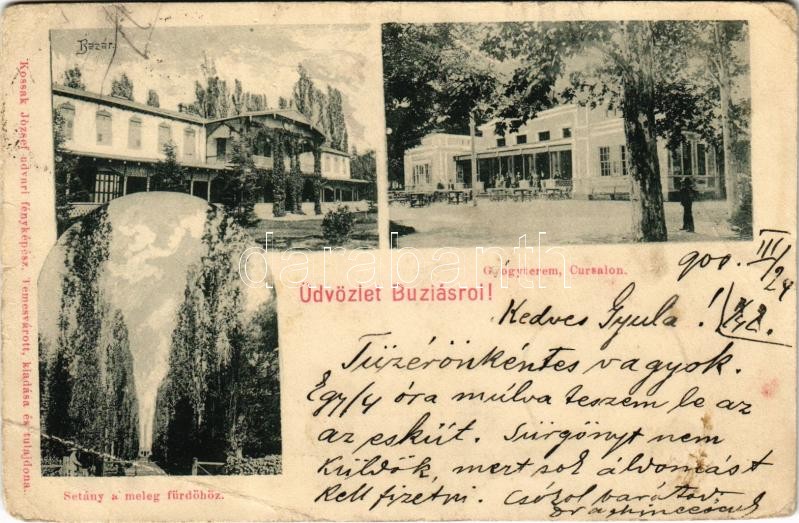 Bazár.
Kossak József udvari fényképész. Temesvárott, kiadása és tulajdona.
darabanth.com
Gyógyterem, Cursalon.
Üdvözlet Buziásroi!
900. III/24
Kedves Gyula!
Tüzérönkéntes vagyok.
Egy/4 óra múlva teszem le az
az esküt. Sürgönyt nem
küldök, mert sok áldomást
kell fizetni. Csókol barátod
Setány a meleg fürdőhöz.